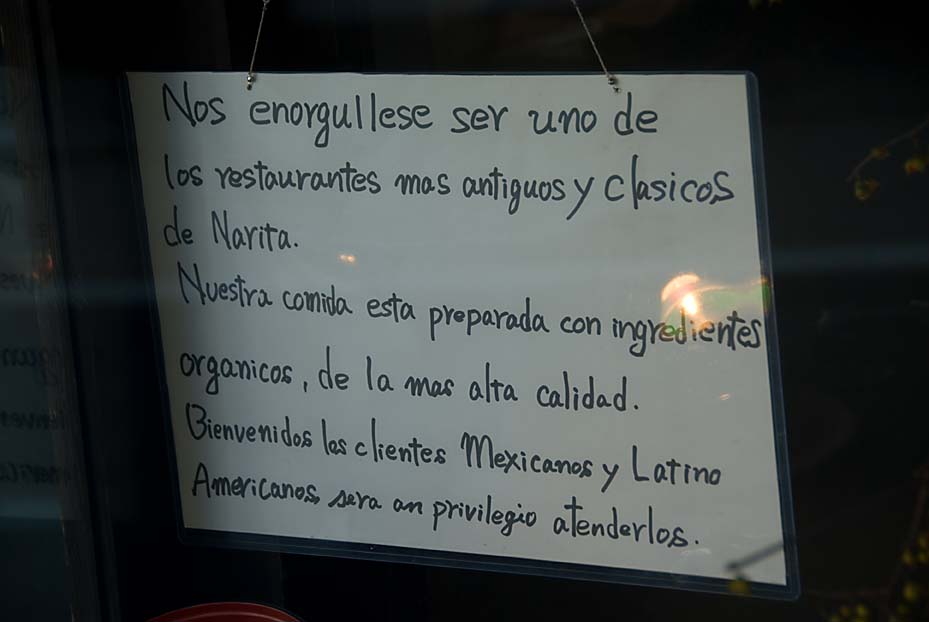 Nos enorgullese ser uno de
los restaurantes mas antiguos y clasicos
de Narita.
Nuestra comida esta preparada con ingredientes
organicos, de la mas alta calidad.
Bienvenidos los clientes Mexicanos y Latino
Americanos, sera an privilegio atenderlos.